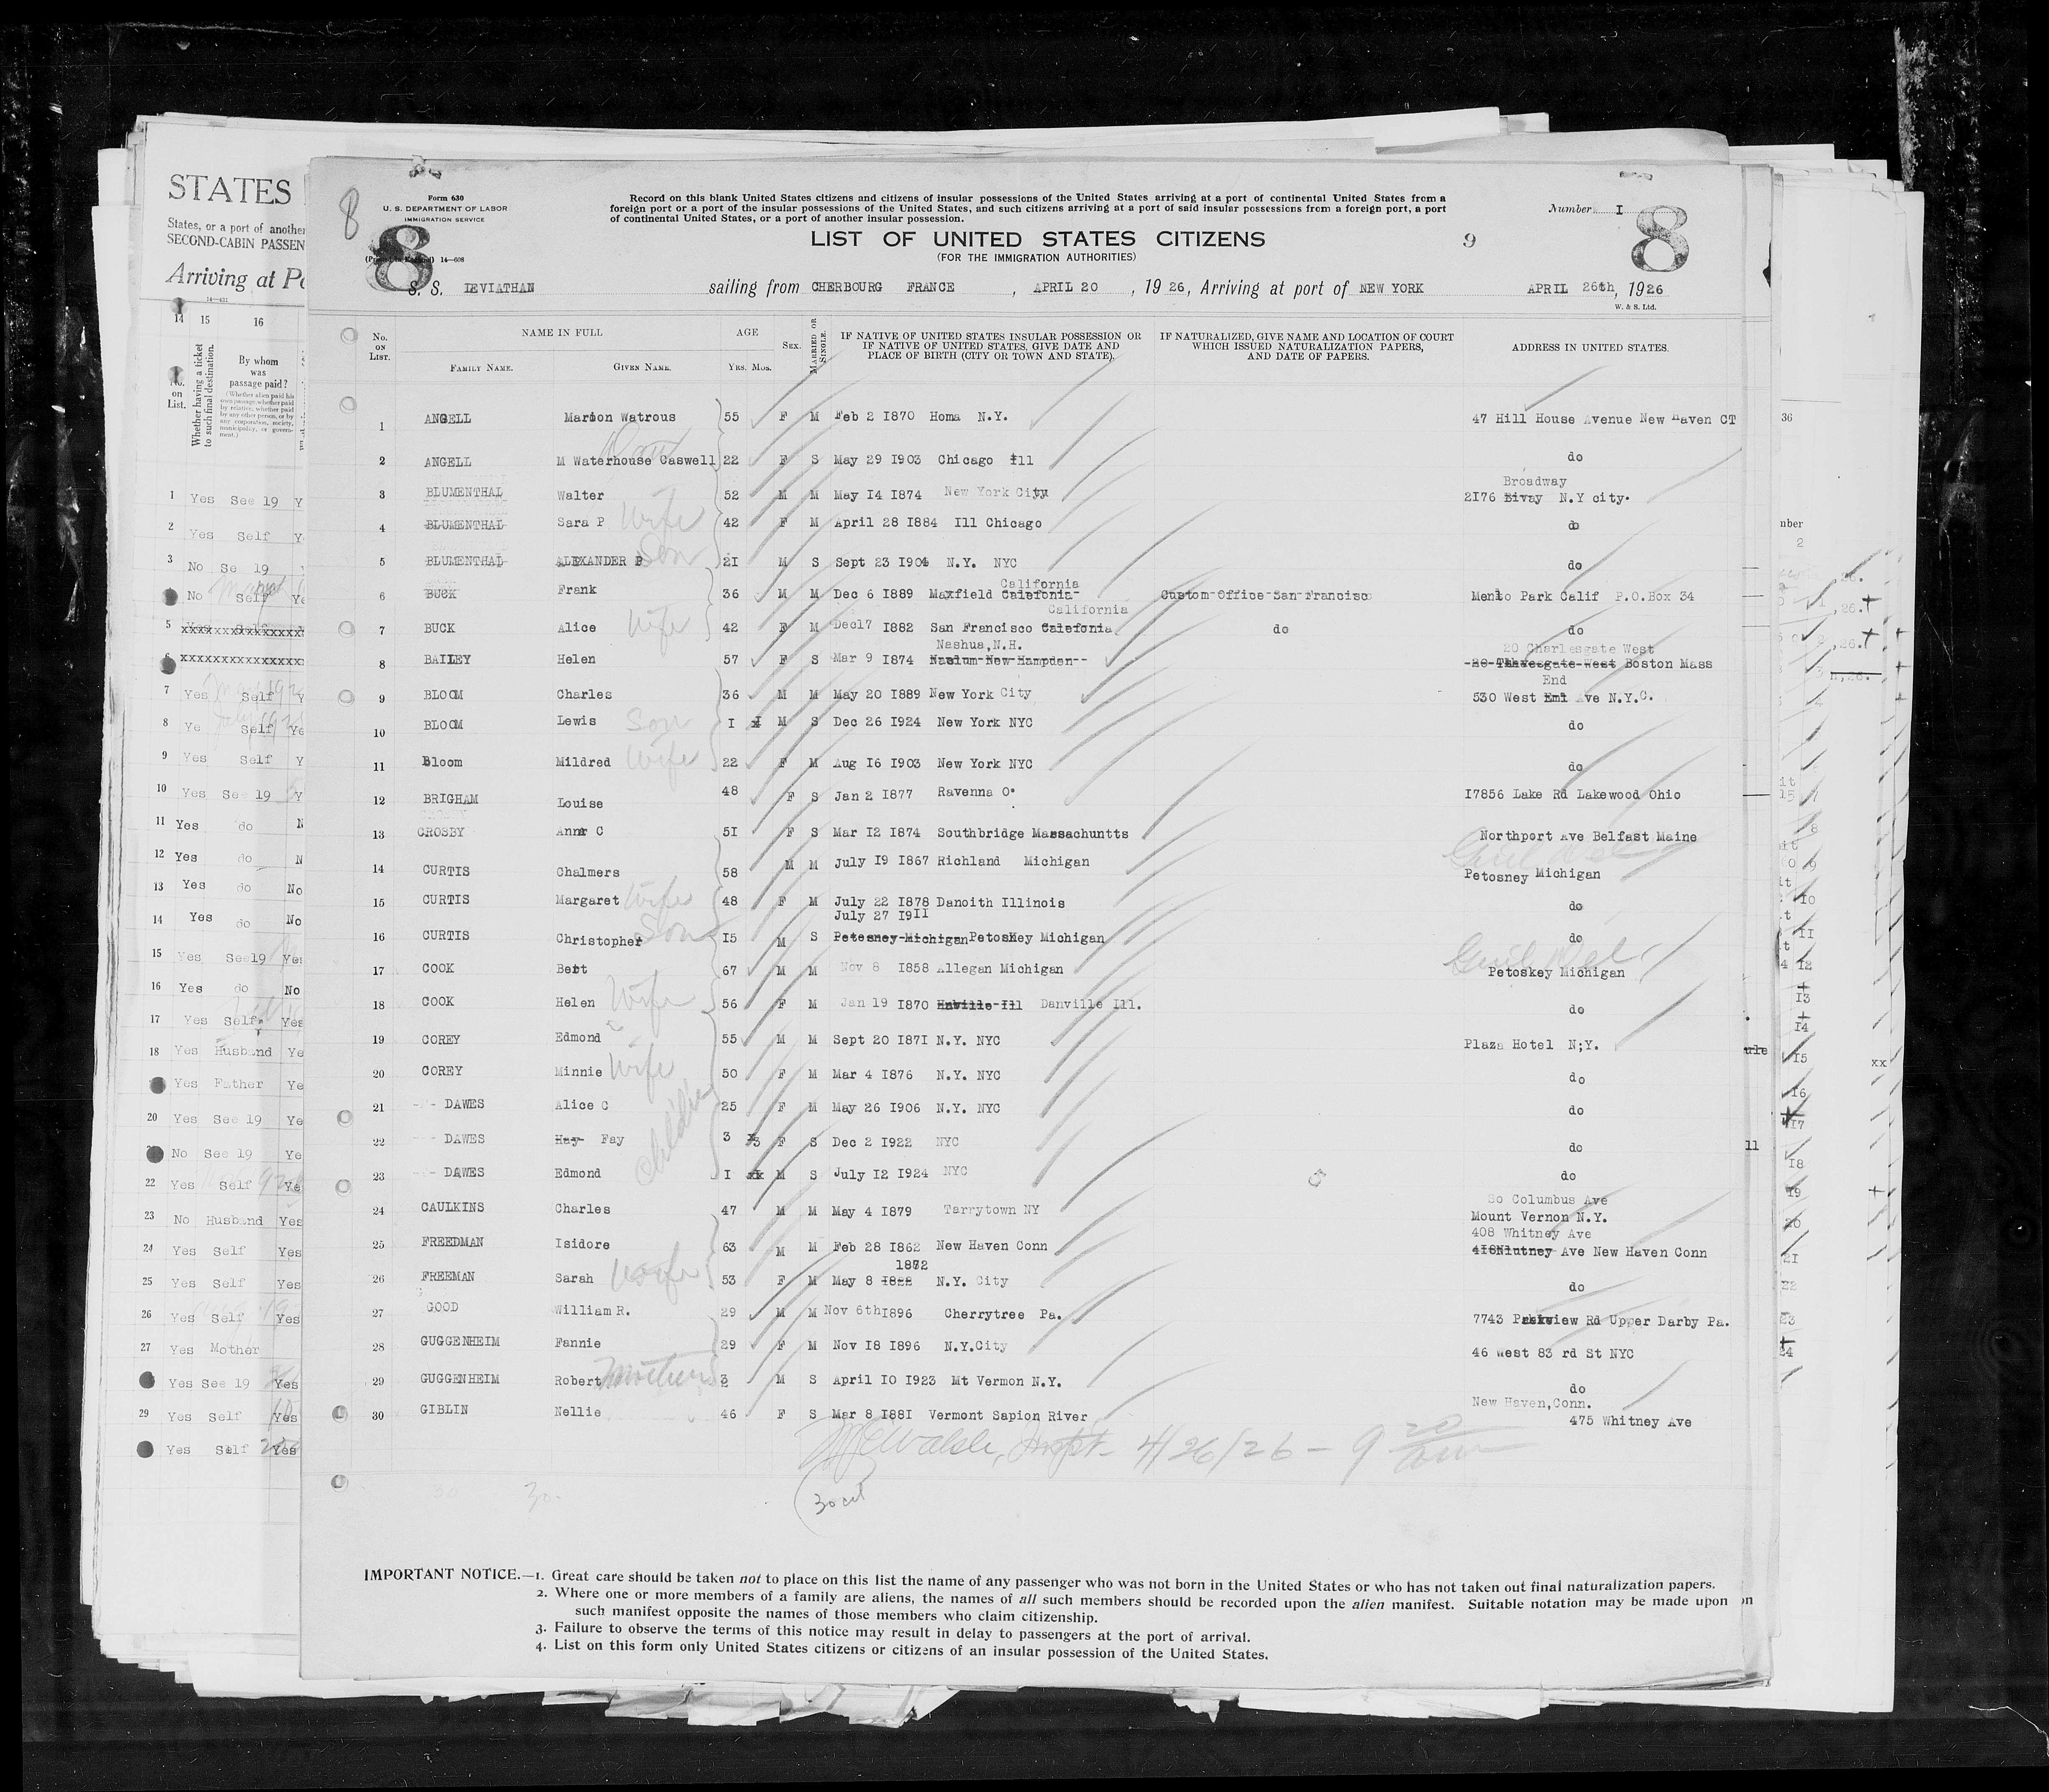 STATES
States, or a port of another
SECOND-CABIN PASSEN
Arriving at Po
14 15 16
No. on List.
Whether having a ticket to such final destination.
By whom was passage paid?
1 Yes See 19 Y
2 Yes Self Y
3 No Se 19
No Self Ye
5
7 Yes Self Y
8 Ye Self Ye
9 Yes Self Y
10 Yes See 19 Y
11 Yes do N
12 Yes do N
13 Yes do No
14 Yes do No
15 Yes See19 Yes
16 Yes do No
17 Yes Self Yes
18 Yes Husband Ye
Yes Father Ye
20 Yes See 19 Ye
No See 19 Ye
22 Yes Self Ye
23 No Husband Yes
24 Yes Self Yes
25 Yes Self Yes
26 Yes Self Yes
27 Yes Mother
Yes See 19 Yes
29 Yes Self Yes
Yes Self Yes
8
Form 630
U. S. DEPARTMENT OF LABOR
IMMIGRATION SERVICE
8
14—608
Record on this blank United States citizens and citizens of insular possessions of the United States arriving at a port of continental United States from a
foreign port or a port of the insular possessions of the United States, and such citizens arriving at a port of said insular possessions from a foreign port, a port
of continental United States, or a port of another insular possession.
Number I
8
LIST OF UNITED STATES CITIZENS
9
(FOR THE IMMIGRATION AUTHORITIES)
S. S. LEVIATHAN sailing from CHERBOURG FRANCE , APRIL 20 , 19 26, Arriving at port of NEW YORK APRIL 26th, 1926
W. & S. Ltd.
No. on List.
NAME IN FULL
Family Name. Given Name.
AGE
Yrs. Mos.
Sex.
Married or Single.
IF NATIVE OF UNITED STATES INSULAR POSSESSION OR
IF NATIVE OF UNITED STATES, GIVE DATE AND
PLACE OF BIRTH (CITY OR TOWN AND STATE).
IF NATURALIZED, GIVE NAME AND LOCATION OF COURT
WHICH ISSUED NATURALIZATION PAPERS,
AND DATE OF PAPERS.
ADDRESS IN UNITED STATES.
1 ANGELL Marion Watrous 55 F M Feb 2 I870 Homa N.Y. 47 Hill House Avenue New Haven CT
2 ANGELL M Waterhouse Caswell 22 F S May 29 I903 Chicago Ill do
Broadway
3 BLUMENTHAL Walter 52 M M May I4 I874 New York City 2I76 Bivay N.Y city.
4 BLUMENTHAL Sara P Wife 42 F M April 28 I884 Ill Chicago do
5 BLUMENTHAL ALEXANDER B Son 2I M S Sept 23 I904 N.Y. NYC do
California
6 BUCK Frank 36 M M Dec 6 I889 Maxfield Calefonia Custom Office San Francisco Menlo Park Calif P.O.Box 34
California
7 BUCK Alice Wife 42 F M Dec17 I882 San Francisco Calefonia do do
Nashua,N.H. 20 Charlesgate West
8 BAILEY Helen 57 F S Mar 9 I874 Boston Mass
End
9 BLOOM Charles 36 M M May 20 I889 New York City 530 West Ave N.Y.C.
10 BLOOM Lewis Son I M S Dec 26 I924 New York NYC do
11 Bloom Mildred Wife 22 F M Aug I6 I903 New York NYC do
12 BRIGHAM Louise 48 F S Jan 2 I877 Ravenna O. I7856 Lake Rd Lakewood Ohio
13 CROSBY Anna C 5I F S Mar I2 I874 Southbridge Massachuntts Northport Ave Belfast Maine
14 CURTIS Chalmers 58 M M July I9 I867 Richland Michigan Petosney Michigan
15 CURTIS Margaret Wife 48 F M July 22 I878 Danoith Illinois do
July 27 I9II
16 CURTIS Christopher Son I5 M S Petosney Michigan Petoskey Michigan do
17 COOK Bert 67 M M Nov 8 I858 Allegan Michigan Petoskey Michigan
18 COOK Helen Wife 56 F M Jan 19 I870 Danville Ill. do
19 COREY Edmond 55 M M Sept 20 I87I N.Y. NYC Plaza Hotel N;Y.
20 COREY Minnie Wife 50 F M Mar 4 I876 N.Y. NYC do
21 DAWES Alice C children 25 F M May 26 I906 N.Y. NYC do
22 DAWES Hay Fay 3 3 F S Dec 2 I922 NYC do
23 DAWES Edmond I M S July I2 I924 NYC do
So Columbus Ave
24 CAULKINS Charles 47 M M May 4 I879 Tarrytown NY Mount Vernon N.Y.
408 Whitney Ave
25 FREEDMAN Isidore 63 M M Feb 28 I862 New Haven Conn 418Nlutney Ave New Haven Conn
1872
26 FREEMAN Sarah Wife 53 F M May 8 N.Y. City do
27 GOOD William R. 29 M M Nov 6thI896 Cherrytree Pa. 7743 Parkview Rd Upper Darby Pa.
28 GUGGENHEIM Fannie 29 F M Nov I8 I896 N.Y.City 46 West 83 rd St NYC
29 GUGGENHEIM Robert 3 M S April IO I923 Mt Vermon N.Y. do
New Haven,Conn.
30 GIBLIN Nellie 46 F S Mar 8 I88I Vermont Sapion River 475 Whitney Ave
Walsh, Inspt. 4/26/26 — 9 20 am
30
IMPORTANT NOTICE.—1. Great care should be taken not to place on this list the name of any passenger who was not born in the United States or who has not taken out final naturalization papers.
2. Where one or more members of a family are aliens, the names of all such members should be recorded upon the alien manifest. Suitable notation may be made upon
such manifest opposite the names of those members who claim citizenship.
3. Failure to observe the terms of this notice may result in delay to passengers at the port of arrival.
4. List on this form only United States citizens or citizens of an insular possession of the United States.